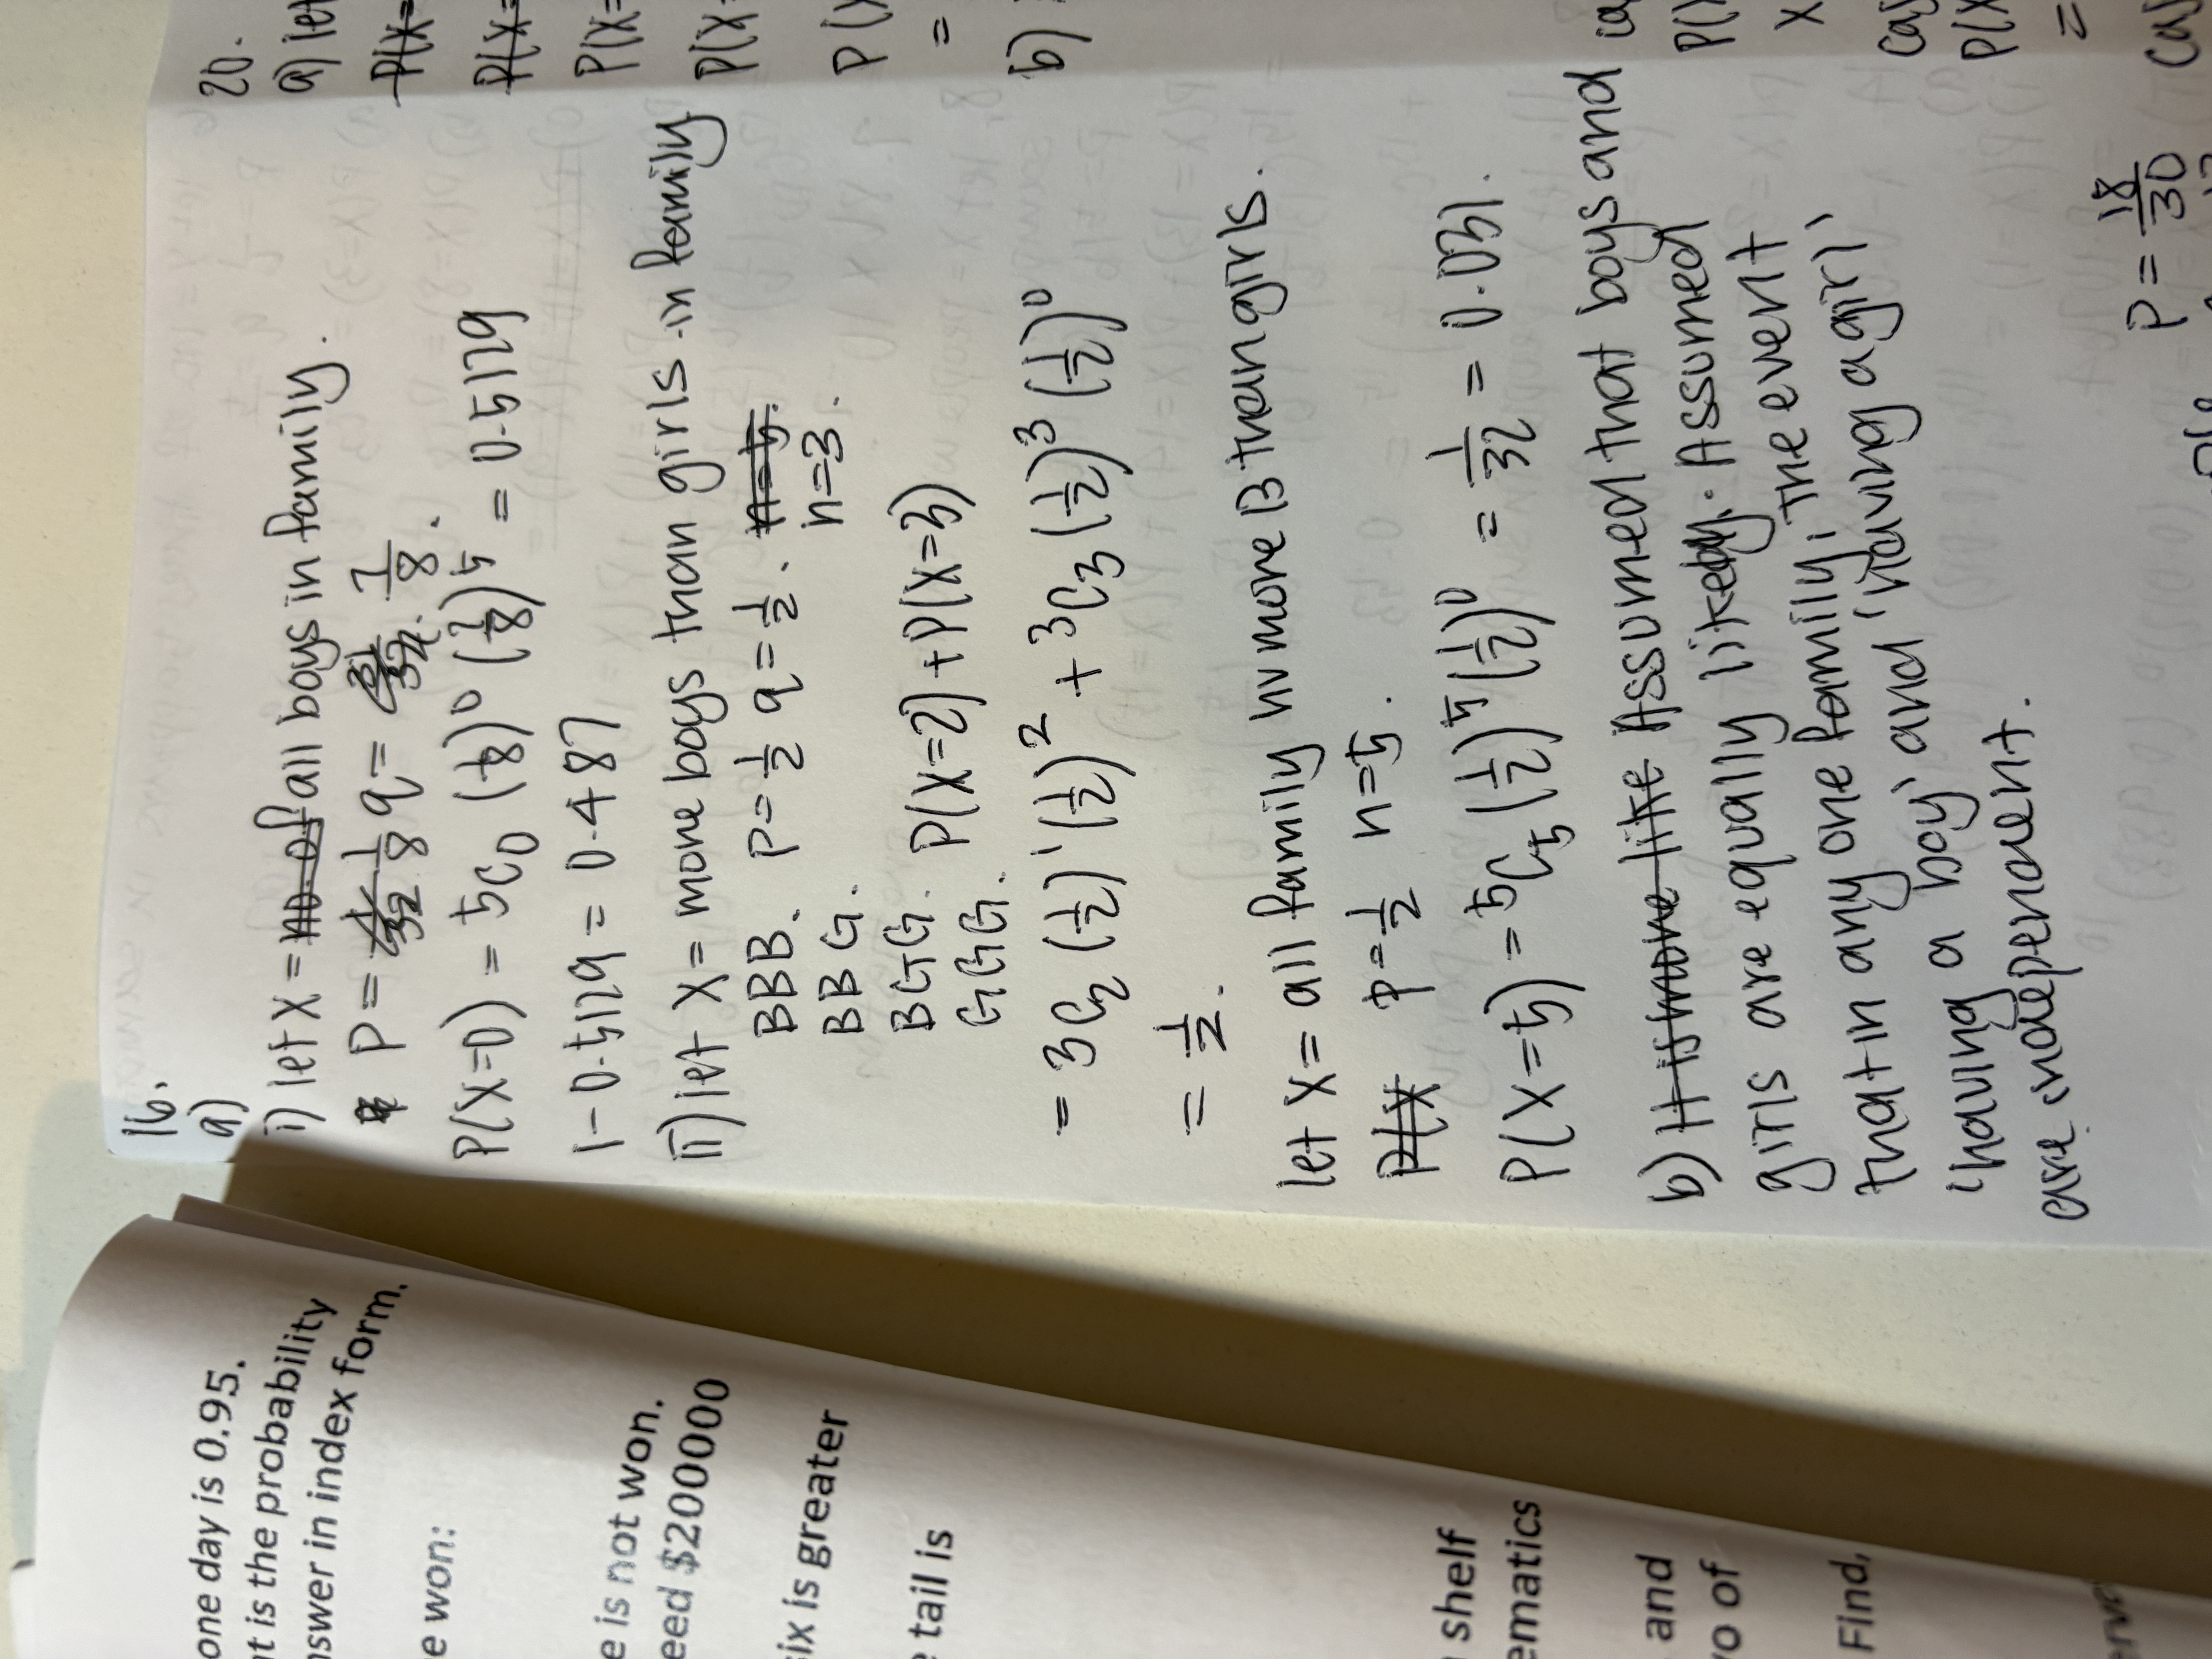 16.
a)
i) let X = no. of all boys in family.
P = 1/8 q = 7/8.
P(X=0) = 5C0 (1/8)^0 (7/8)^5 = 0.5129
1-0.5129 = 0.487
ii) let X = more boys than girls in family
BBB. P = 1/2 q = 1/2. n=5.
BBG. n=3.
BGG. P(X=2) + P(X=3)
GGG.
= 3C2 (1/2)^1 (1/2)^2 + 3C3 (1/2)^3 (1/2)^0
= 1/2.
let X = all family hv more B than girls.
P(X p=1/2 n=5.
P(X=5) = 5C5 (1/2)^5 (1/2)^0 = 1/32 = 0.031.
b) Assumed that boys and
girls are equally likely. Assumed
that in any one family, the event
'having a boy' and 'having a girl'
are independent.
20.
a) let
P(X=
P(X=
P(X=
P(X=
P(X
=
b)
P(X
X
P(X
=
P = 18/30
one day is 0.95.
at is the probability
nswer in index form.
e won:
e is not won.
eed $200000
six is greater
e tail is
shelf
ematics
and
vo of
Find,